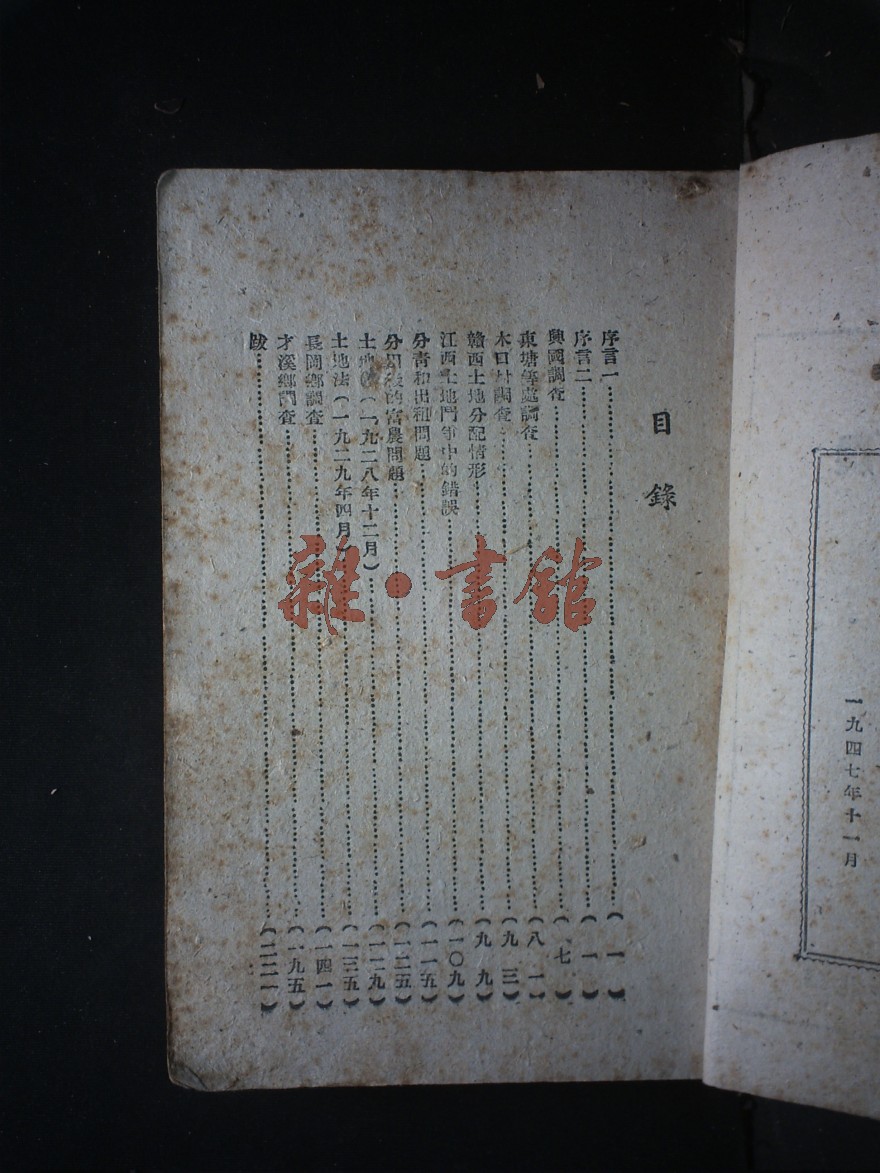 一九四七年十一月
目錄
序言一……(一)
序言二……(一)
興國調查……(七)
東塘等處調查……(八一)
木口村調查……(九三)
贛西土地分配情形……(九九)
江西土地鬥爭中的錯誤……(一〇九)
分青和出租問題……(一一五)
分田後的富農問題……(一二五)
土地法(一九二八年十二月)……(一二九)
土地法(一九二九年四月)……(一三五)
長岡鄉調查……(一四一)
才溪鄉調查……(一九五)
跋……(二二一)
雜·書館